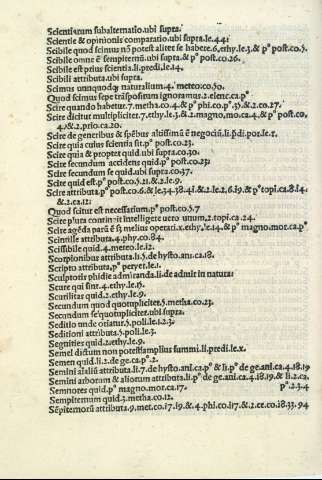 Scientiarum subalternatio.ubi supra.
Scientie & opinionis comparatio.ubi supra.le.44.
Scibile quod scimus nõ potest aliter se habere.6.ethy.le.3.& pº post.co.5.
Scibile omne ē sempiternū.ubi supra.& pº post.co.26.
Scibile est prius scientia.li.predi.le.14.
Scibili attributa.ubi supra.
Scimus unumquodq̨ naturalium.4.meteo.co.50.
Quod scimus sepe trãsposituȝ ignoramus.2.elenc.ca.pº
Scire quando habetur.7.metha.co.4.& pº phi.co.pº.35.&.2.co.27.
Scire dicitur multipliciter.7.ethy.le.3.&.2.magno.mo.ca.4.& pº post.co,
4.&.2.prio.ca.20.
Scire de generibus & spẽbus altissimũ ē negociũ.li.p̄di.por.le.1.
Scire quia cuius scientia sit.pº post.co.23.
Scire quia & propter quid.ubi supra.co.30.
Scire secundum accidens quid.pº post.co.23.
Scire secundum se quid.ubi supra.co.37.
Scire quid est.pº post.co.5.21.&.2.le.9.
Scire attributa.pº post.co.6.&.le.34.38.41.&.2.le.2.6.19.& pº topi.ca.8.14.
&.2.ca.12.
Quod scitur est necessarium.pº post.co.5.7
Scire plura contingit intelligere uero unum.2.topi.ca.24.
Scire agẽda parũ ē sȝ melius operari.x.ethy.le.14.& pº magno.mor.ca.pº
Scintille attributa.4.phy.co.84.
Scissibile quid.4.meteo.le.12.
Scorpionibus attributa.li.5.de hysto.ani.ca.18.
Scripto attributa.pº peryer.le.1.
Sculptoris phidie admiranda.li.de admir in natura.
Scure qui sint.4.ethy.le.15.
Scurilitas quid.2.ethy.le.9.
Secundum quod quotupliciter.5.metha.co.23.
Secundum se quotupliciter.ubi supra.
Seditio unde oriatur.5.poli.le.1.2.3.
Seditioni attributa.5.poli.le.3.
Segnities quid.2.ethy.le.9.
Semel dictum non potest amplius summi.li.predi.le.x.
Semen quid.li.2.de ge.ca.pº.2.
Semini aĩaliũ attributa.li.7.de hysto.ani.ca.pº & li.pº de ge.ani.ca.4.18.19
Semini arborum & aliorum attributa.li.pº de ge.ani.ca.4.18.19.& li.2.ca.
Semnores quid.pº magno.mor.ca.17. pº.2.3.4
Sempiternum quid.3.metha.co.12.
Sẽpiternorũ attributa.9.met.co.17.19.&.4.phi.co.117.&.2.ce.co.18.33.94